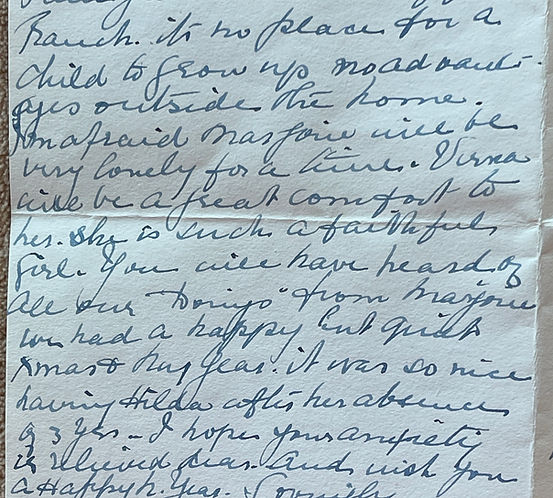 Ranch. its no place for a
child to grow up no advant-
ages outside the home.
Im afraid Marjorie will be
very lonely for a time. Verna
will be a great comfort to
her. She is such a faithful
Girl. You will have heard of
all our "Doings" from Marjorie
we had a happy but quiet
Xmas & Year. it was so nice
having Hilda after her absence
of 3 yrs - I hope your anxiety
is relieved dear. and wish you
a Happy N. Year.